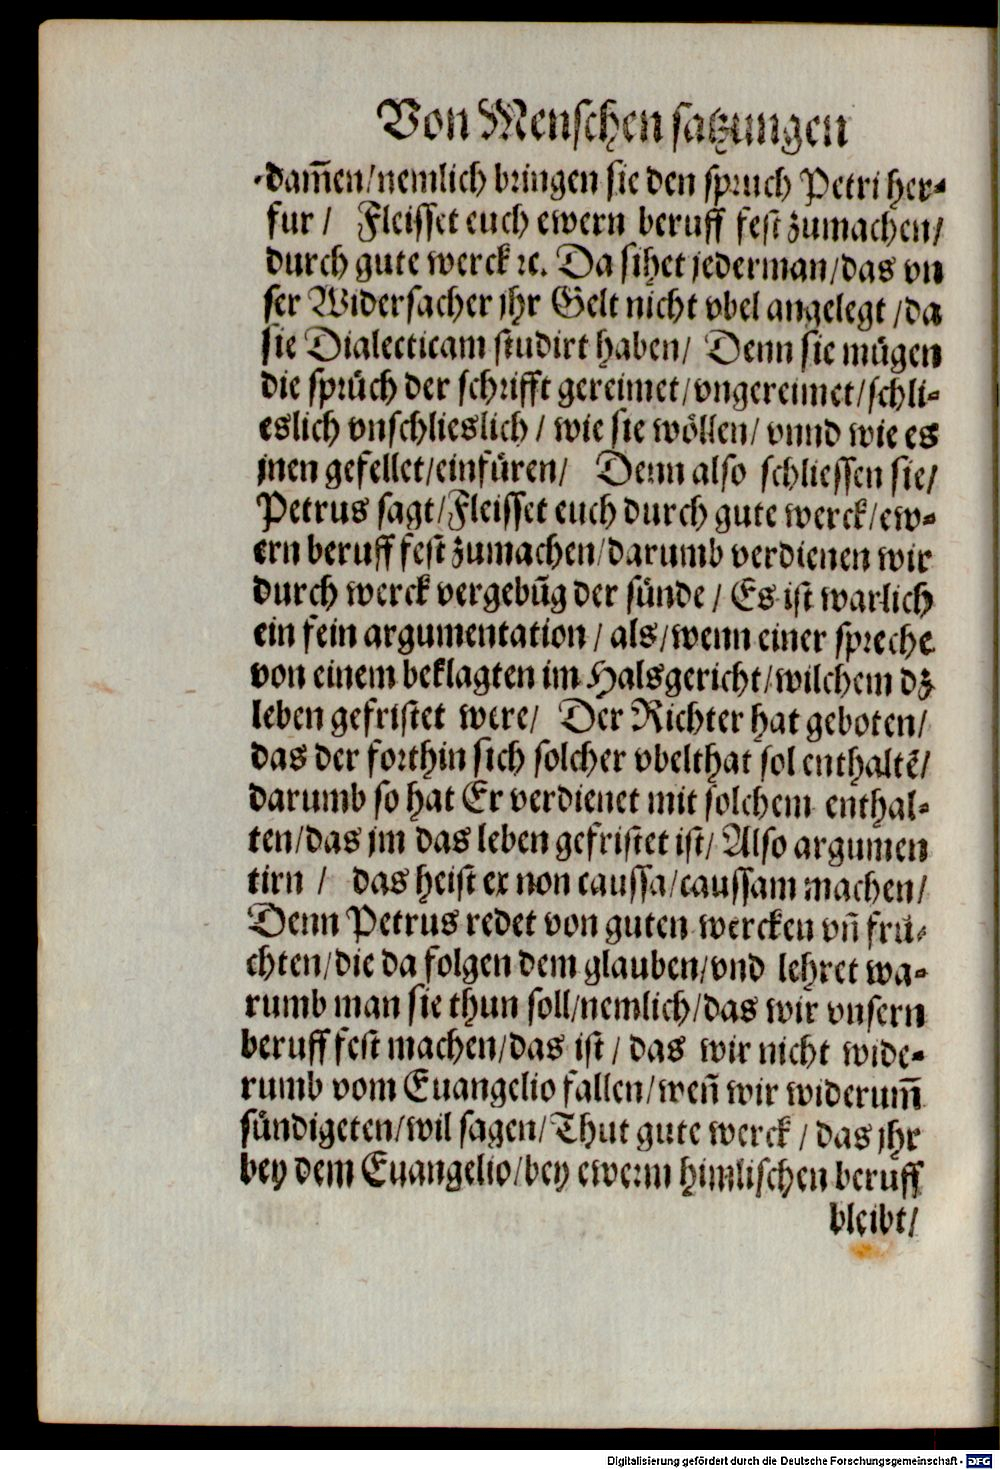 Von Menschen satzungen
dam̃en/nemlich bringen sie den spruch Petri her-
fur / Fleisset euch ewern beruff fest zumachen/
durch gute werck ꝛc. Da sihet jederman/das vn
ser Widersacher jhr Gelt nicht vbel angelegt /da
sie Dialecticam studirt haben/ Denn sie mügen
die sprüch der schrifft gereimet/vngereimet/schli-
eslich vnschlieslich / wie sie wöllen/ vnnd wie es
jnen gefellet/einfüren/ Denn also schliessen sie/
Petrus sagt/Fleisset euch durch gute werck/ew-
ern beruff fest zumachen/darumb verdienen wir
durch werck vergebũg der sünde / Es ist warlich
ein fein argumentation / als/wenn einer spreche
von einem beklagten im Halsgericht/wilchem dz
leben gefristet were/ Der Richter hat geboten/
das der forthin sich solcher vbelthat sol enthaltẽ/
darumb so hat Er verdienet mit solchem enthal-
ten/das jm das leben gefristet ist/ Also argumen
tirn / das heist ex non caussa/caussam machen/
Denn Petrus redet von guten wercken vñ frü-
chten/die da folgen dem glauben/vnd lehret wa-
rumb man sie thun soll/nemlich/das wir vnsern
beruff fest machen/das ist / das wir nicht wide-
rumb vom Euangelio fallen/weñ wir widerum̃
sündigeten/wil sagen/Thut gute werck / das jhr
bey dem Euangelio/bey ewerm himlischen beruff
bleibt/
Digitalisierung gefördert durch die Deutsche Forschungsgemeinschaft - DFG